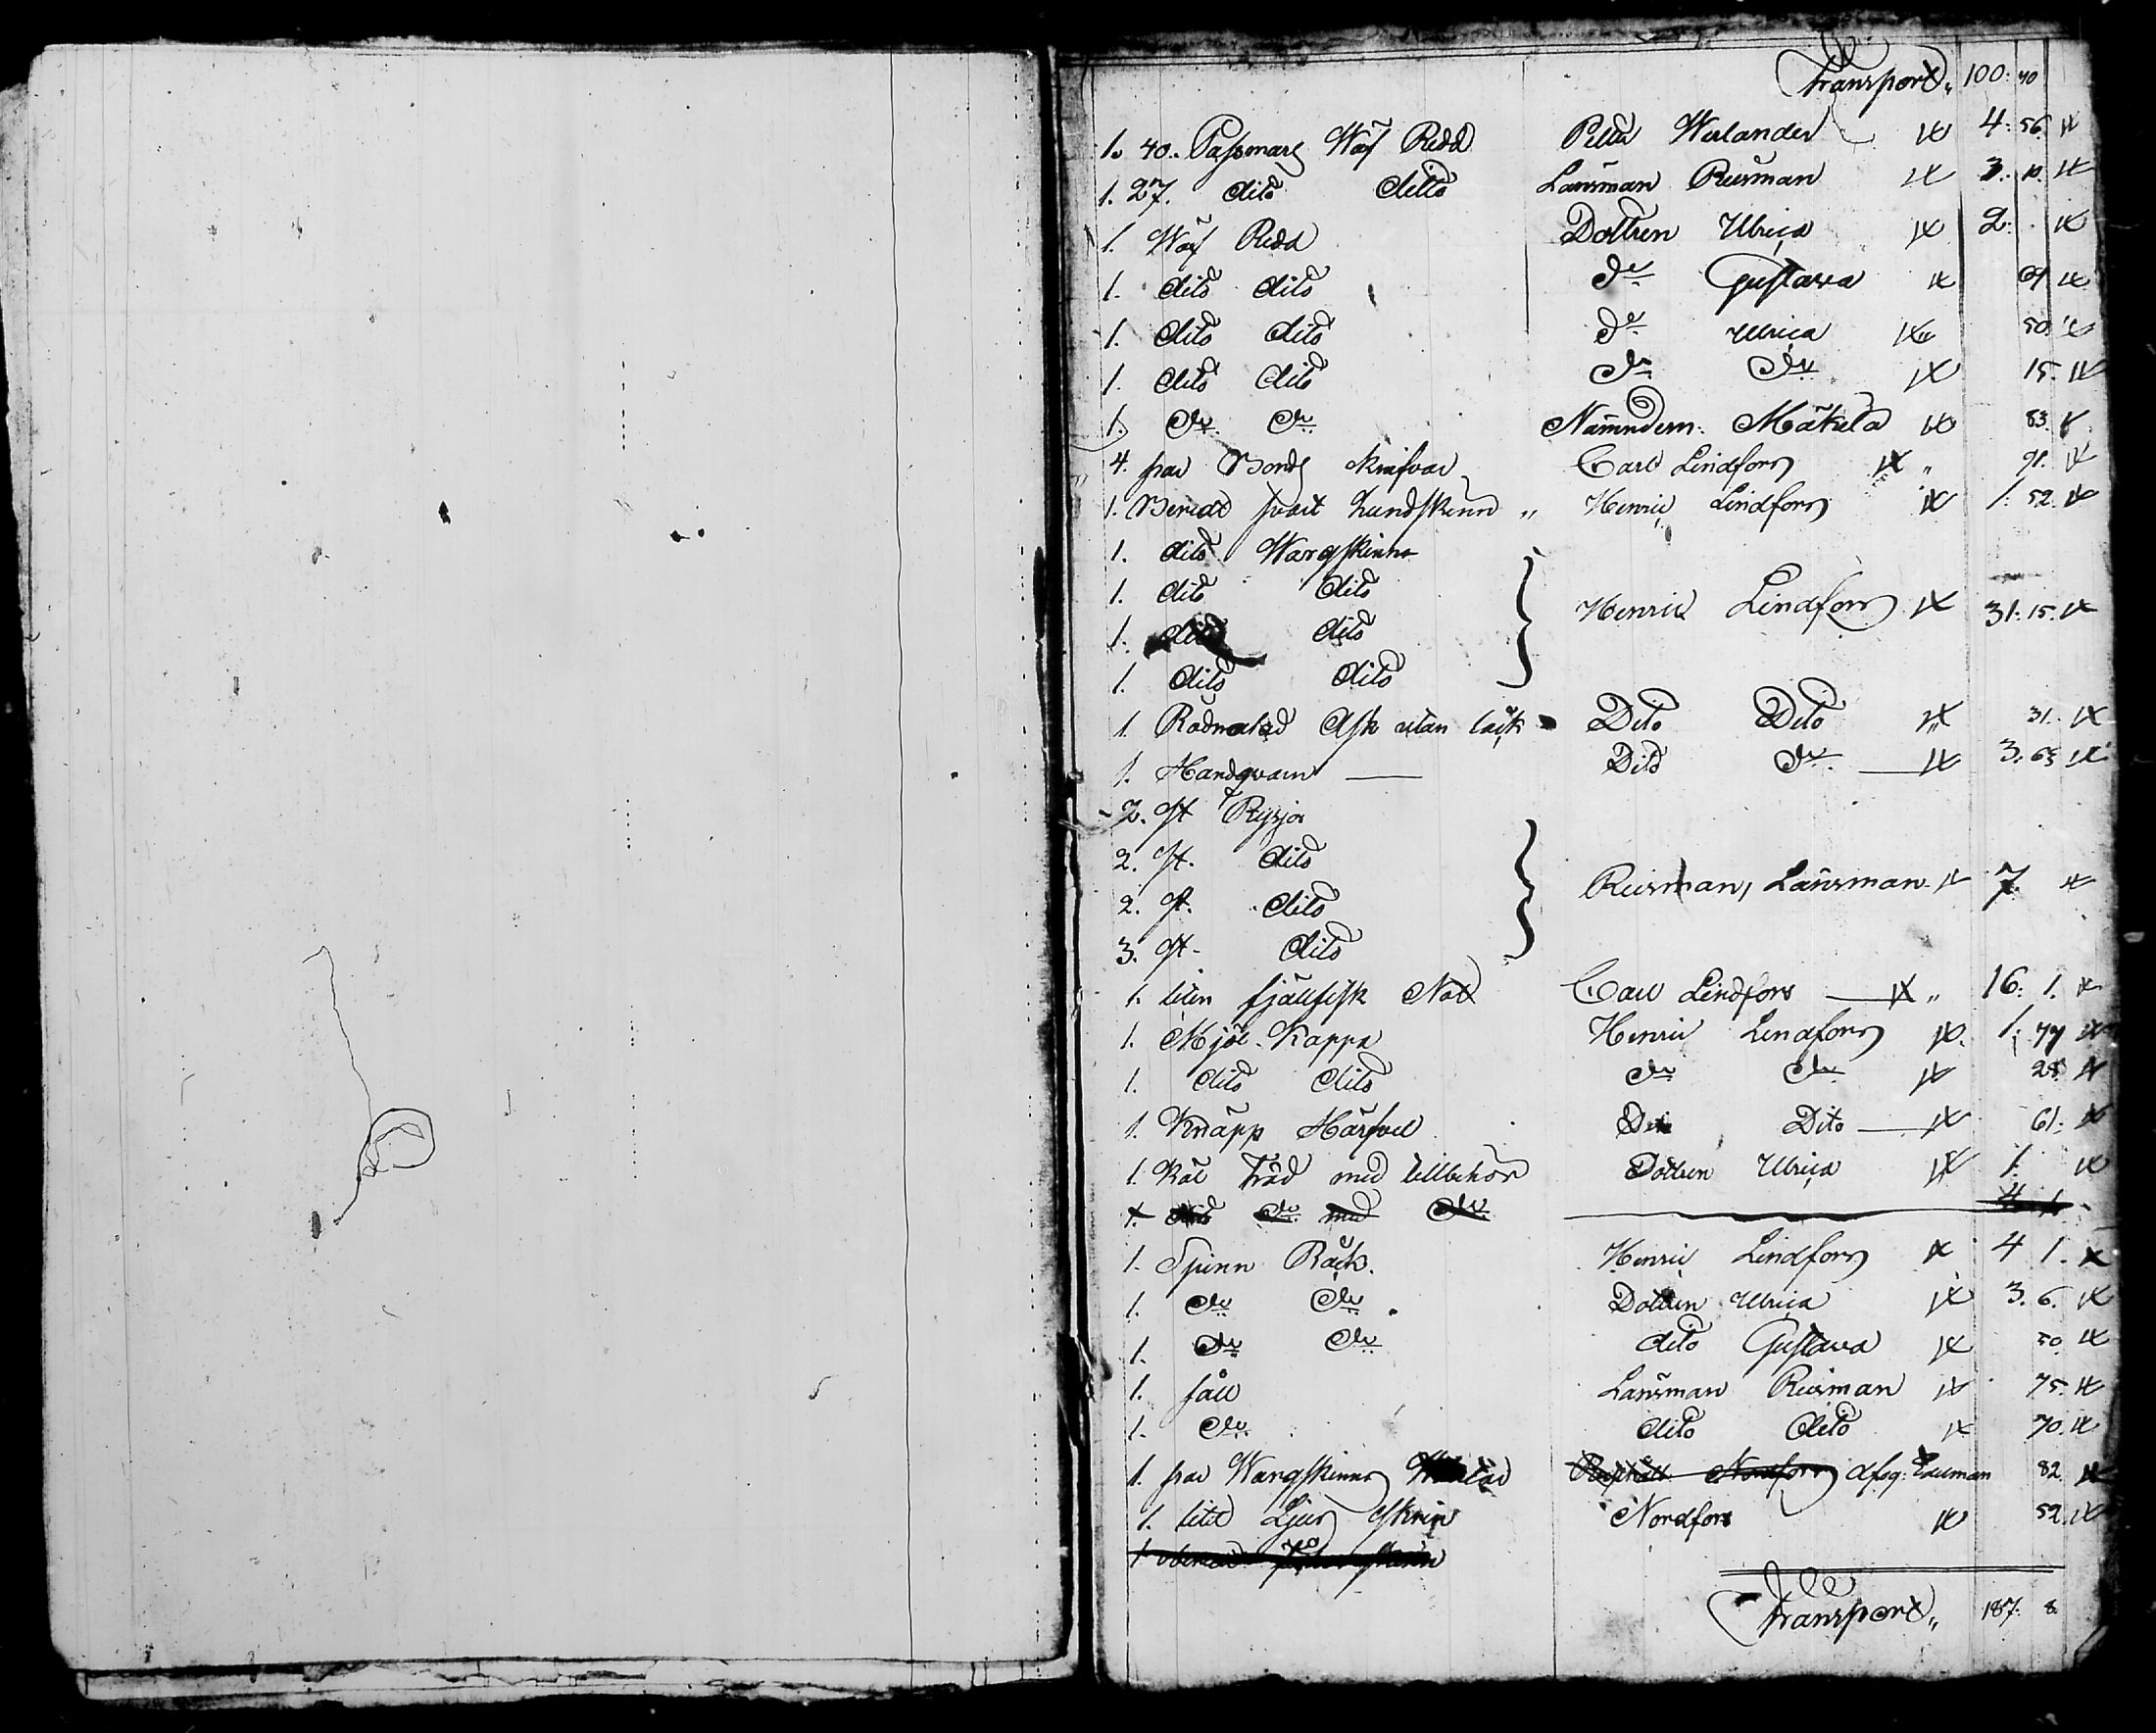 Transport, 100: 40
1. 40. Passmans Wäf Redd Petter Welander 4: 56
1. 27. dito ditto Länsman Reusman 3: 10.
1. Wäf Redd Dottren Ulrica 2:
1. dito dito do Gustava 69
1. dito dito do Ulrica 50
1. dito dito do do 15.
1. do do Nämndem: Mäkelä 83.
4. par Bords knifvar Carl Lindfors 91.
1. Beredt svart hundskinn Henric Lindfors 1: 52.
1. dito Wargskinn
1. dito dito
1. dito dito
1. dito dito
Henric Lindfors 31: 15.
1 Rödmålad Ask utan låck Dito Dito 31.
1. Handqvarn Dito do 3. 63
2. st Rysjor
2. st. dito
2. st. dito
3. st. dito
Reusman, Länsman 7.
1. liten fjällfisk Not Carl Lindfors 16: 1.
1. Mjöl Kappa Henric Lindfors 1: 77
1. dito dito do do 28
1. Knäpp Härfvel Dito 61:
1. Råe Tråd med tillbehör Dottren Ulrica 1.
1. dito do med do 4 1
1. Spinn Råck. Henric Lindfors 4 1.
1. do do Dottren Ulrica 3. 6.
1. do do dito Gustava 50
1. fäll Länsman Reusman 75.
1. do dito dito 70.
1. par Wargskinns Nordfors 82.
1. litet Ljus skrin Nordfors 52.
1
Transport, 187: 8.